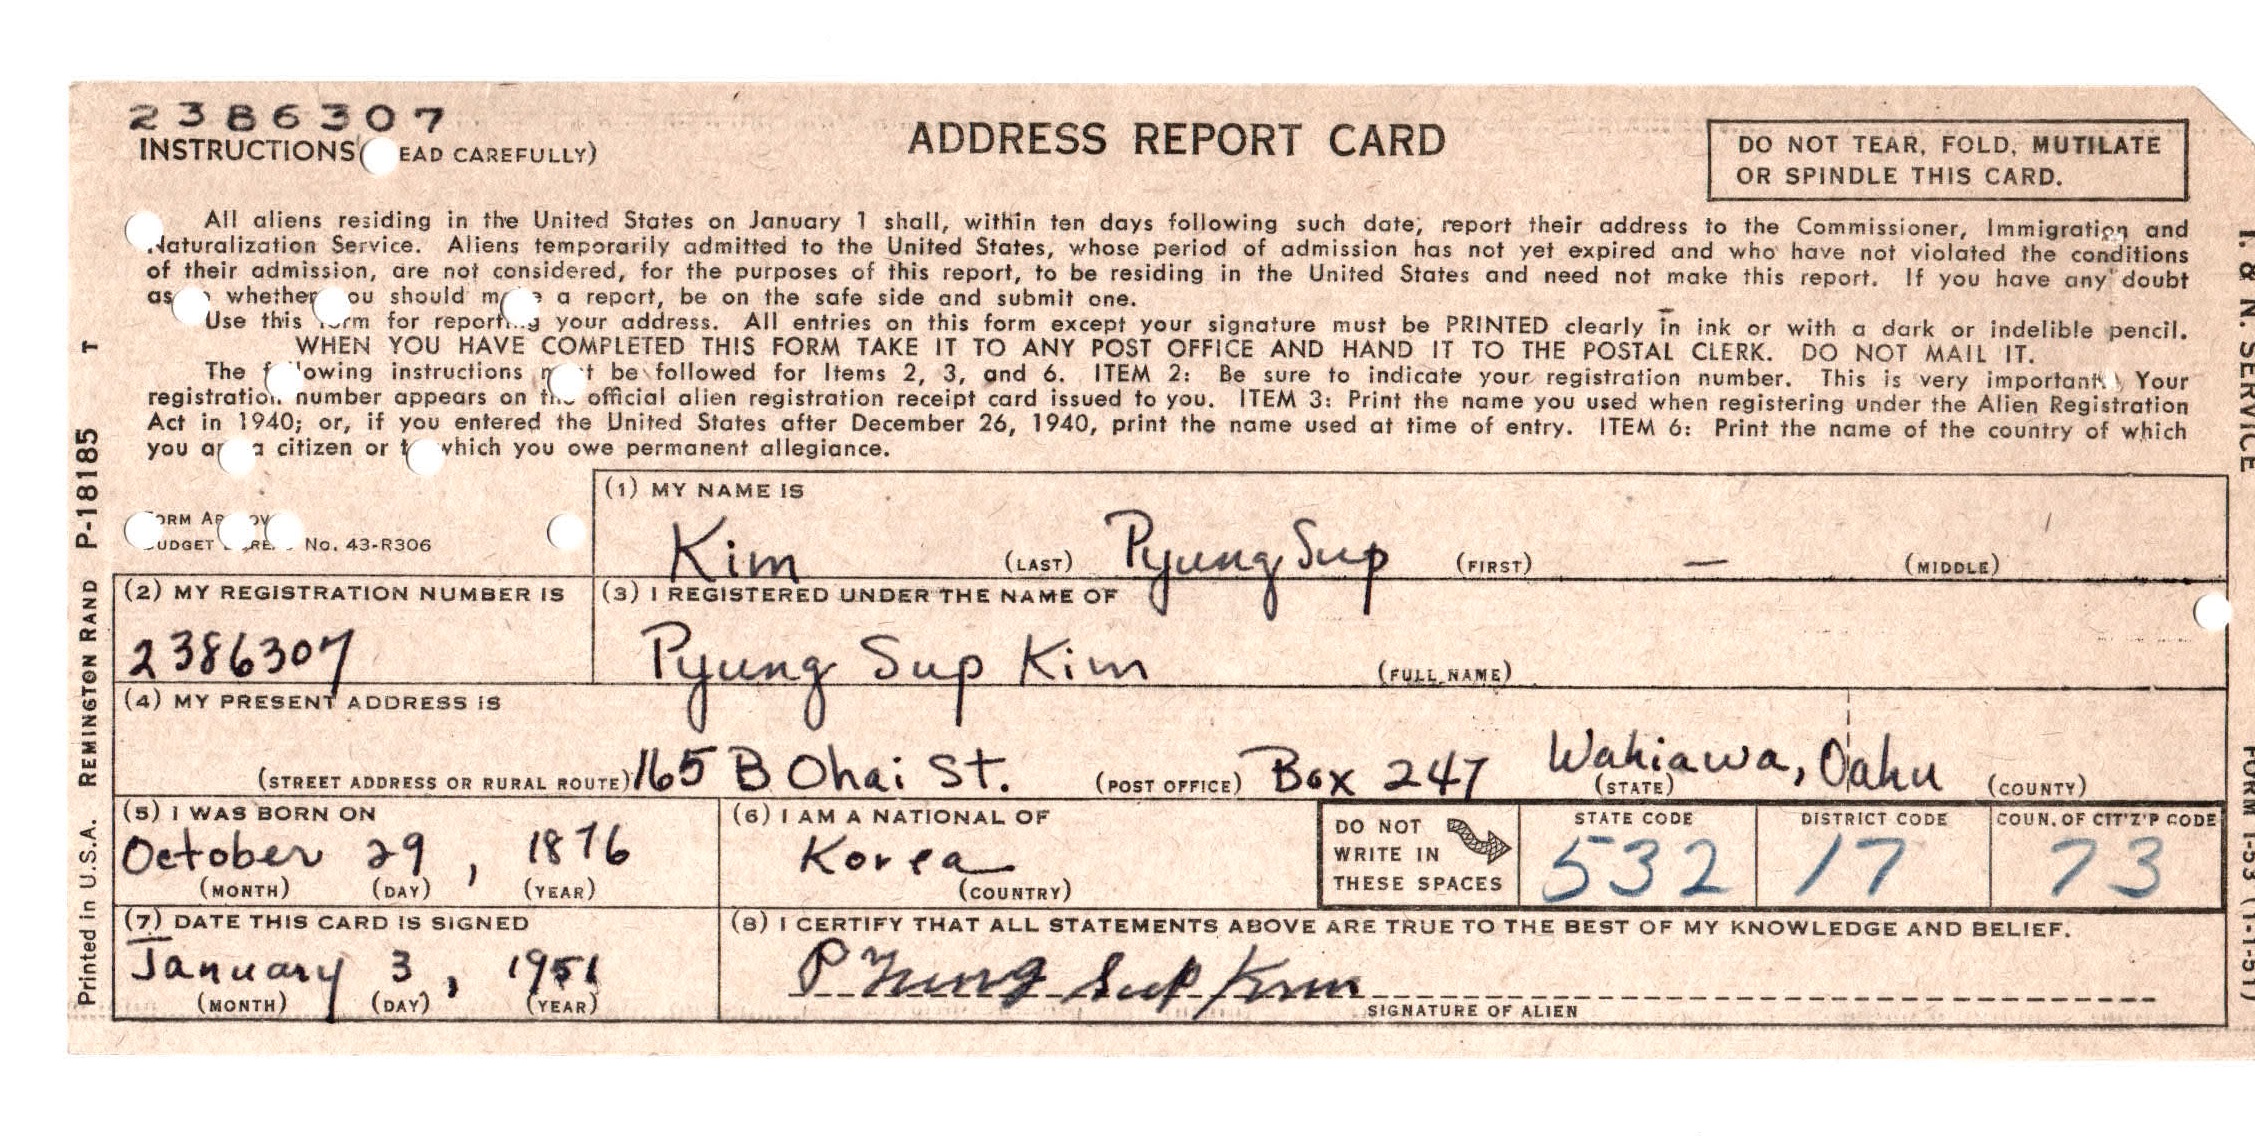 2386307
INSTRUCTIONS( EAD CAREFULLY)
ADDRESS REPORT CARD
DO NOT TEAR, FOLD, MUTILATE
OR SPINDLE THIS CARD.
All aliens residing in the United States on January 1 shall, within ten days following such date, report their address to the Commissioner, Immigration and
Naturalization Service. Aliens temporarily admitted to the United States, whose period of admission has not yet expired and who have not violated the conditions
of their admission, are not considered, for the purposes of this report, to be residing in the United States and need not make this report. If you have any doubt
as whether you should make a report, be on the safe side and submit one.
Use this form for reporting your address. All entries on this form except your signature must be PRINTED clearly in ink or with a dark or indelible pencil.
WHEN YOU HAVE COMPLETED THIS FORM TAKE IT TO ANY POST OFFICE AND HAND IT TO THE POSTAL CLERK. DO NOT MAIL IT.
The following instructions must be followed for Items 2, 3, and 6. ITEM 2: Be sure to indicate your registration number. This is very important. Your
registration number appears on the official alien registration receipt card issued to you. ITEM 3: Print the name you used when registering under the Alien Registration
Act in 1940; or, if you entered the United States after December 26, 1940, print the name used at time of entry. ITEM 6: Print the name of the country of which
you are a citizen or to which you owe permanent allegiance.
FORM APPROVED
BUDGET BUREAU No. 43-R306
(1) MY NAME IS
Kim (LAST) Pyung Sup (FIRST) — (MIDDLE)
(2) MY REGISTRATION NUMBER IS
2386307
(3) I REGISTERED UNDER THE NAME OF
Pyung Sup Kim (FULL NAME)
(4) MY PRESENT ADDRESS IS
(STREET ADDRESS OR RURAL ROUTE) 165 B Ohai St. (POST OFFICE) Box 247 Wahiawa, Oahu (STATE) (COUNTY)
(5) I WAS BORN ON
October 29, 1876
(MONTH) (DAY) (YEAR)
(6) I AM A NATIONAL OF
Korea
(COUNTRY)
DO NOT
WRITE IN
THESE SPACES
STATE CODE
532
DISTRICT CODE
17
COUN. OF CIT'Z'P CODE
73
(7) DATE THIS CARD IS SIGNED
January 3, 1951
(MONTH) (DAY) (YEAR)
(8) I CERTIFY THAT ALL STATEMENTS ABOVE ARE TRUE TO THE BEST OF MY KNOWLEDGE AND BELIEF.
Pyung Sup Kim
SIGNATURE OF ALIEN
Printed in U.S.A. REMINGTON RAND P-18185 T
I. & N. SERVICE
FORM I-53 (1-1-51)